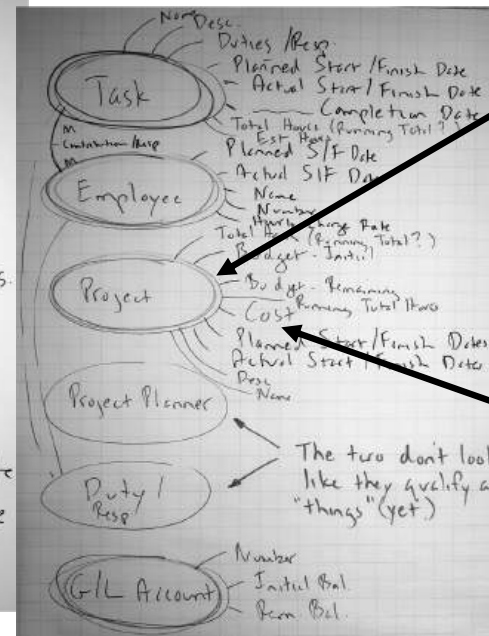 Name
Desc.
Duties / Resp.
Planned Start / Finish Date
Task
Actual Start / Finish Date
Completion Date
Total Hours (Running Total?)
Est Hours
M
Contribution / Resp
M
Planned S/F Date
Actual S/F Date
Employee
Name
Number
Hourly Charge Rate
Total (Running Total?)
Budget - Initial
Project
Budget - Remaining
Running Total Hours
Cost
Planned Start / Finish Dates
Actual Start / Finish Dates
Desc
Name
Project Planner
The two don't look
like they qualify a
"things" (yet)
Duty /
Resp
Number
G/L Account
Initial Bal
Rem. Bal.
s.
te
e